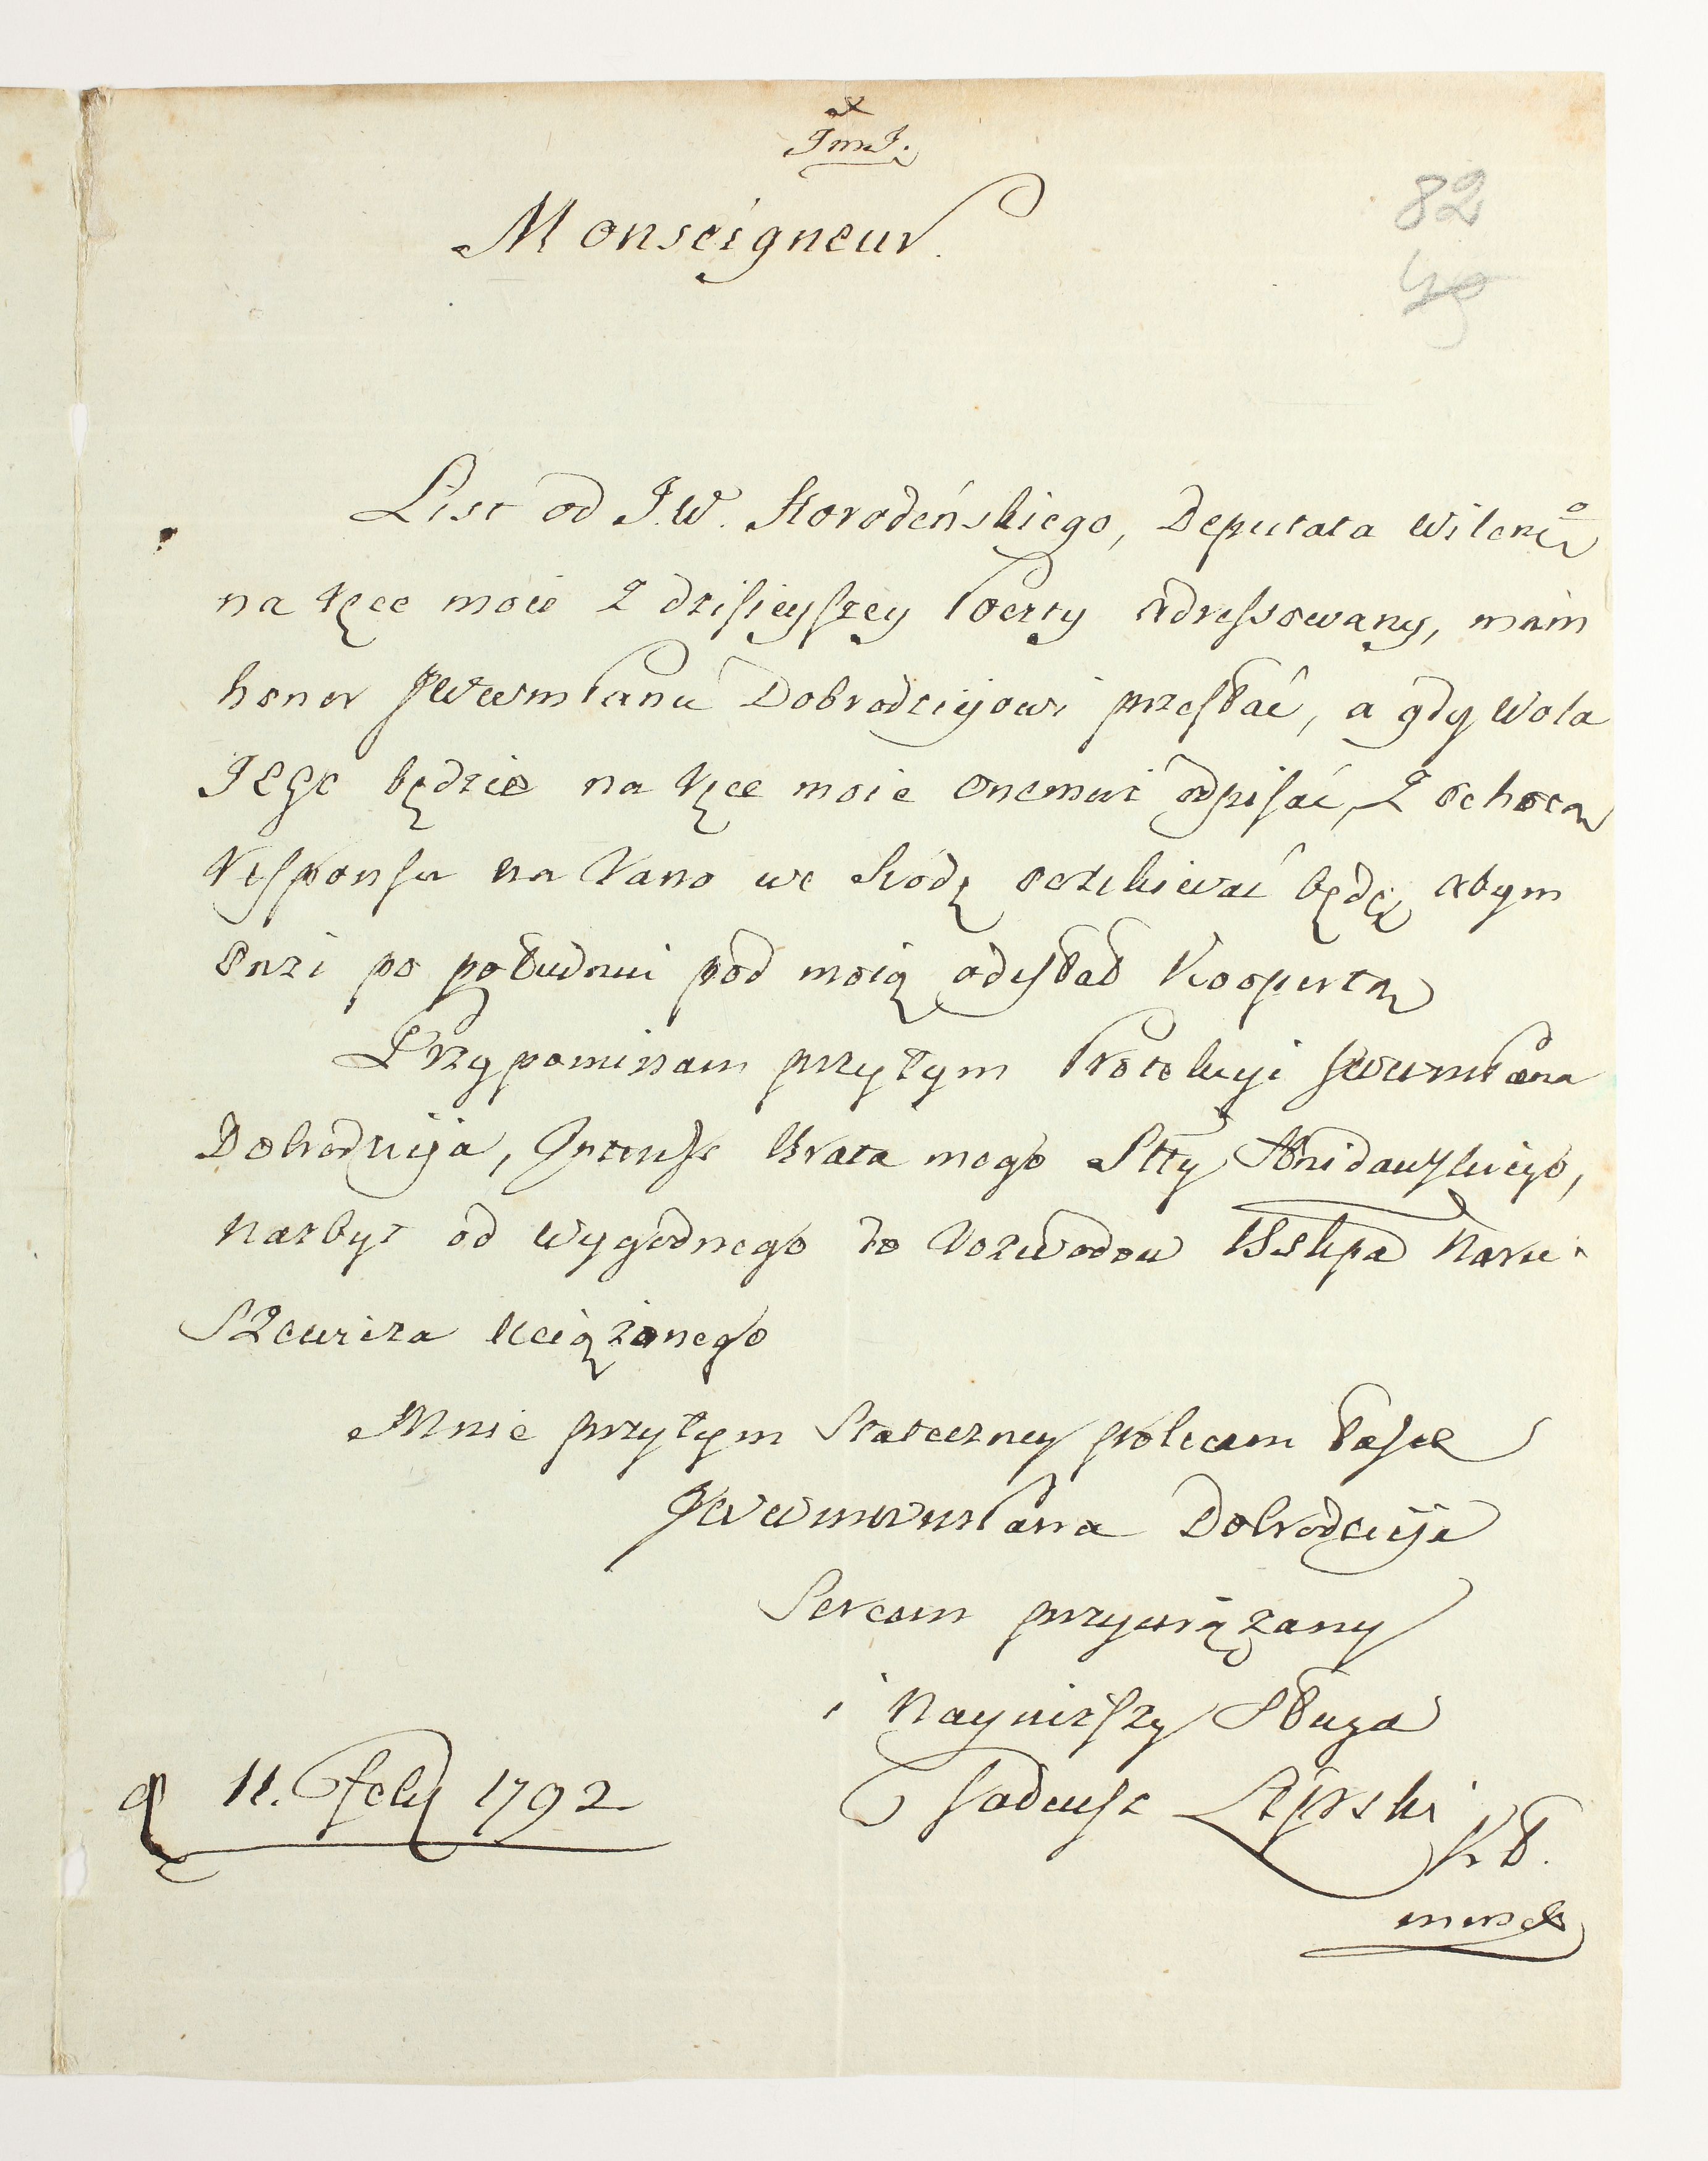 JmJ.
82
Monseigneur.
List od J.W. Horodeńskiego, Deputata Wileń⁰
na ręce moie z dzisieyszey Poczty adressowany, mam
honor JWWmPanu Dobrodziejowi przesłać, a gdy Wola
Jego będzie na ręce moie onemuż odpisać, z ochotą
Responsu na Rano we Srodę oczekiwać będę, abym
onzi po południu pod moią odesłał Koopertą
Przypominam przytym Protekcyi JWWmPana
Dobrodzieja, Interess Brata mego Stty
nazbyt od wygodnego do Rozwodow Bskpa Naru-
szewicza uciążonego
Mnie przytym Stateczney polecam Łasce
Dobrodzieja
Sercem przywiązany
i Nayniższy Sługa
Tadeusz Lipski
KŁ.
mmp
d 11. Febr 1792